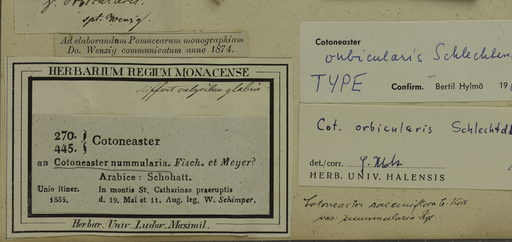 orbicularis
spt. Wenzig.
Ad elaborandum Pomacearum monographiam
Do. Wenzig communicatum anno 1874.
HERBARIUM REGIUM MONACENSE
differt calycibus glabris
270.
445. } Cotoneaster
an Cotoneaster nummularia. Fisch. et Meyer?
Arabice: Schohatt.
Unio itiner.
1835.
In montis St. Catharinae praeruptis
d. 19. Mai et 11. Aug. leg. W. Schimper.
Herbar. Univ. Ludov. Maximil.
Cotoneaster
orbicularis Schlechten
TYPE
Confirm. Bertil Hylmö 19
Cot. orbicularis Schlechtd
det./corr.
HERB. UNIV. HALENSIS
Cotoneaster racemiflora
var nummularia